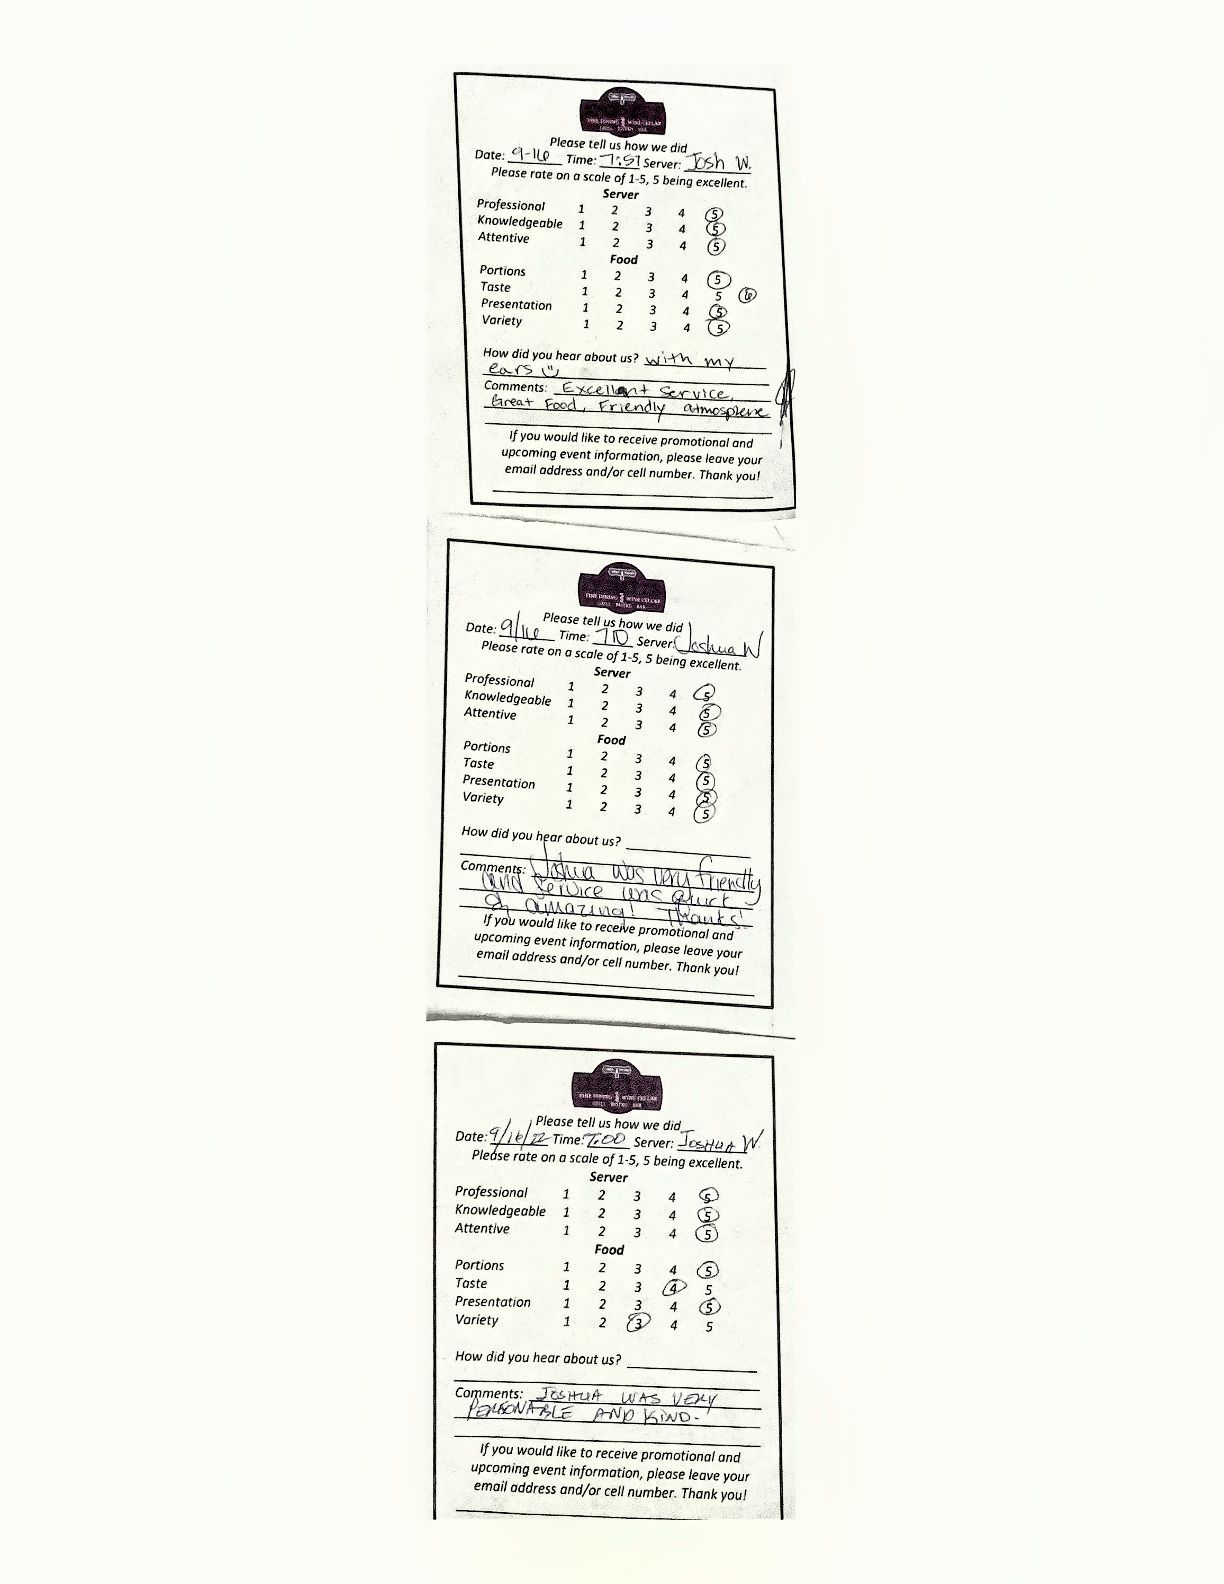 FINE DINING & WINE CELLAR
GRILL BISTRO BAR
Please tell us how we did
Date: 9-16 Time: 7:57 Server: Josh W.
Please rate on a scale of 1-5, 5 being excellent.
Server
Professional 1 2 3 4 5
Knowledgeable 1 2 3 4 5
Attentive 1 2 3 4 5
Food
Portions 1 2 3 4 5
Taste 1 2 3 4 5 6
Presentation 1 2 3 4 5
Variety 1 2 3 4 5
How did you hear about us? with my
ears
Comments: Excellent Service,
Great Food, Friendly atmosphere
If you would like to receive promotional and
upcoming event information, please leave your
email address and/or cell number. Thank you!
FINE DINING & WINE CELLAR
GRILL BISTRO BAR
Please tell us how we did
Date: 9/16 Time: 710 Server: Joshua W
Please rate on a scale of 1-5, 5 being excellent.
Server
Professional 1 2 3 4 5
Knowledgeable 1 2 3 4 5
Attentive 1 2 3 4 5
Food
Portions 1 2 3 4 5
Taste 1 2 3 4 5
Presentation 1 2 3 4 5
Variety 1 2 3 4 5
How did you hear about us?
Comments: Joshua was very friendly
and service was quick
& amazing! Thanks!
If you would like to receive promotional and
upcoming event information, please leave your
email address and/or cell number. Thank you!
FINE DINING & WINE CELLAR
GRILL BISTRO BAR
Please tell us how we did
Date: 9/16/22 Time: 7:00 Server: JOSHUA W.
Please rate on a scale of 1-5, 5 being excellent.
Server
Professional 1 2 3 4 5
Knowledgeable 1 2 3 4 5
Attentive 1 2 3 4 5
Food
Portions 1 2 3 4 5
Taste 1 2 3 4 5
Presentation 1 2 3 4 5
Variety 1 2 3 4 5
How did you hear about us?
Comments: JOSHUA WAS VERY
PERSONABLE AND KIND-
If you would like to receive promotional and
upcoming event information, please leave your
email address and/or cell number. Thank you!